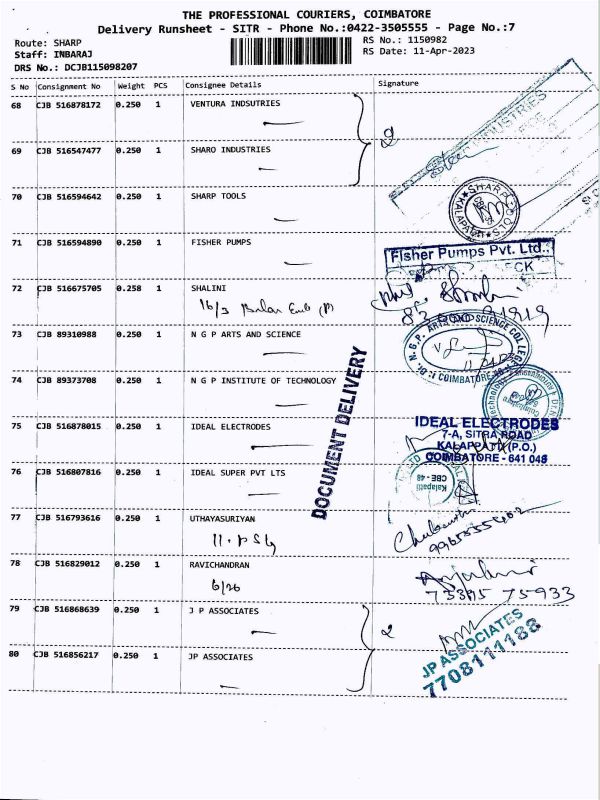 THE PROFESSIONAL COURIERS, COIMBATORE
Delivery Runsheet - SITR - Phone No.:0422-3505555 - Page No.:7
Route: SHARP
RS No.: 1150982
Staff: INBARAJ
RS Date: 11-Apr-2023
DRS No.: DCJB115098207
S No Consignment No Weight PCS Consignee Details Signature
68 CJB 516878172 0.250 1 VENTURA INDSUTRIES
2
69 CJB 516547477 0.250 1 SHARO INDUSTRIES
INDUSTRIES
70 CJB 516594642 0.250 1 SHARP TOOLS
SHARP TOOLS
KALAPATTI
71 CJB 516594890 0.250 1 FISHER PUMPS
Fisher Pumps Pvt. Ltd.
CK
72 CJB 516675705 0.258 1 SHALINI
16/3
73 CJB 89310988 0.250 1 N G P ARTS AND SCIENCE
Dr. N. G. P. ARTS AND SCIENCE COLLEGE
COIMBATORE
74 CJB 89373708 0.250 1 N G P INSTITUTE OF TECHNOLOGY
DOCUMENT DELIVERY
75 CJB 516878015 0.250 1 IDEAL ELECTRODES
IDEAL ELECTRODES
7-A, SITRA ROAD
KALAPPATTI (P.O.)
COIMBATORE - 641 048
76 CJB 516807816 0.250 1 IDEAL SUPER PVT LTS
Kalapatti
CBE - 48
77 CJB 516793616 0.250 1 UTHAYASURIYAN
78 CJB 516829012 0.250 1 RAVICHANDRAN
6/26
75933
79 CJB 516868639 0.250 1 J P ASSOCIATES
2
80 CJB 516856217 0.250 1 JP ASSOCIATES
JP ASSOCIATES
7708111188